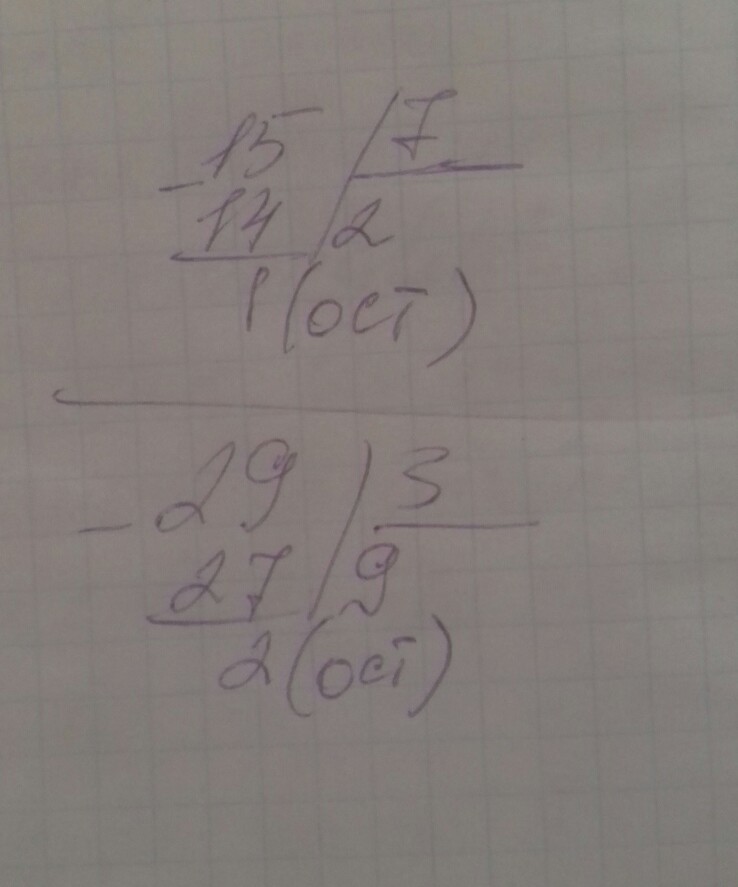 15 7
- 14 2
1 (ост)
- 29 3
27 9
2 (ост)